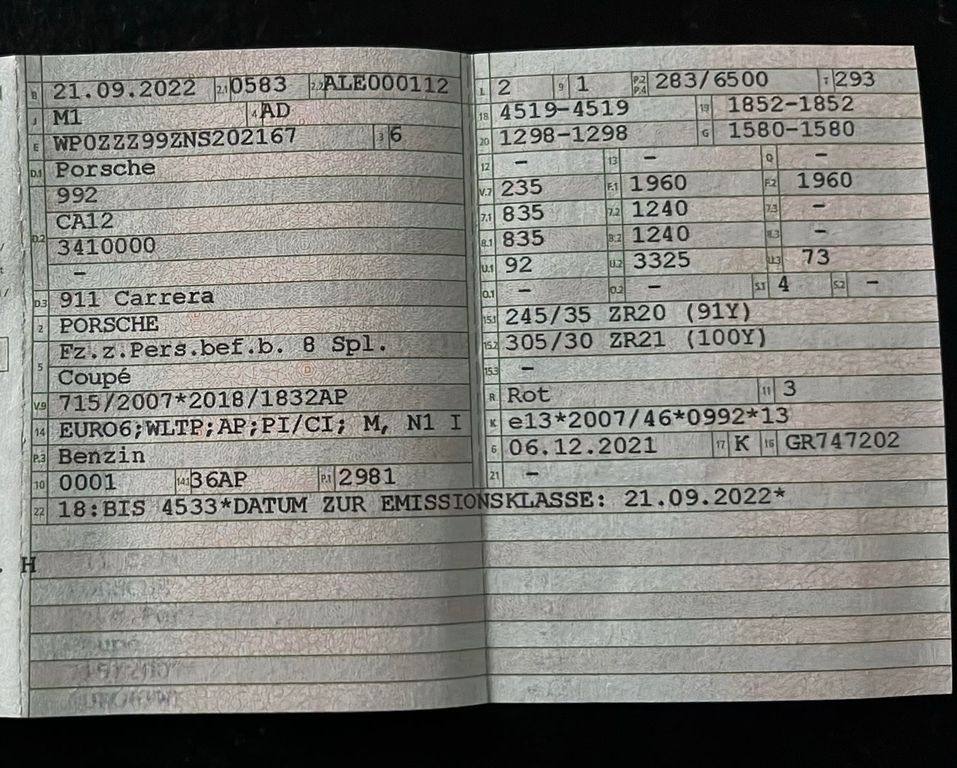 B 21.09.2022 2.1 0583 2.2 ALE000112
J M1 4 AD
E WP0ZZZ99ZNS202167 3 6
D.1 Porsche
992
CA12
D.2 3410000
–
D.3 911 Carrera
2 PORSCHE
5 Fz.z.Pers.bef.b. 8 Spl.
Coupé
V.9 715/2007*2018/1832AP
14 EURO6;WLTP;AP;PI/CI; M, N1 I
P.3 Benzin
10 0001 14.1 36AP P.1 2981
L 2 9 1 P.2 P.4 283/6500 T 293
18 4519–4519 19 1852–1852
20 1298–1298 G 1580–1580
12 – 13 – Q –
V.7 235 F.1 1960 F.2 1960
7.1 835 7.2 1240 7.3 –
8.1 835 8.2 1240 8.3 –
U.1 92 U.2 3325 U.3 73
O.1 – O.2 – S.1 4 S.2 –
15.1 245/35 ZR20 (91Y)
15.2 305/30 ZR21 (100Y)
15.3 –
R Rot 11 3
K e13*2007/46*0992*13
6 06.12.2021 17 K 16 GR747202
21 –
22 18:BIS 4533*DATUM ZUR EMISSIONSKLASSE: 21.09.2022*
H